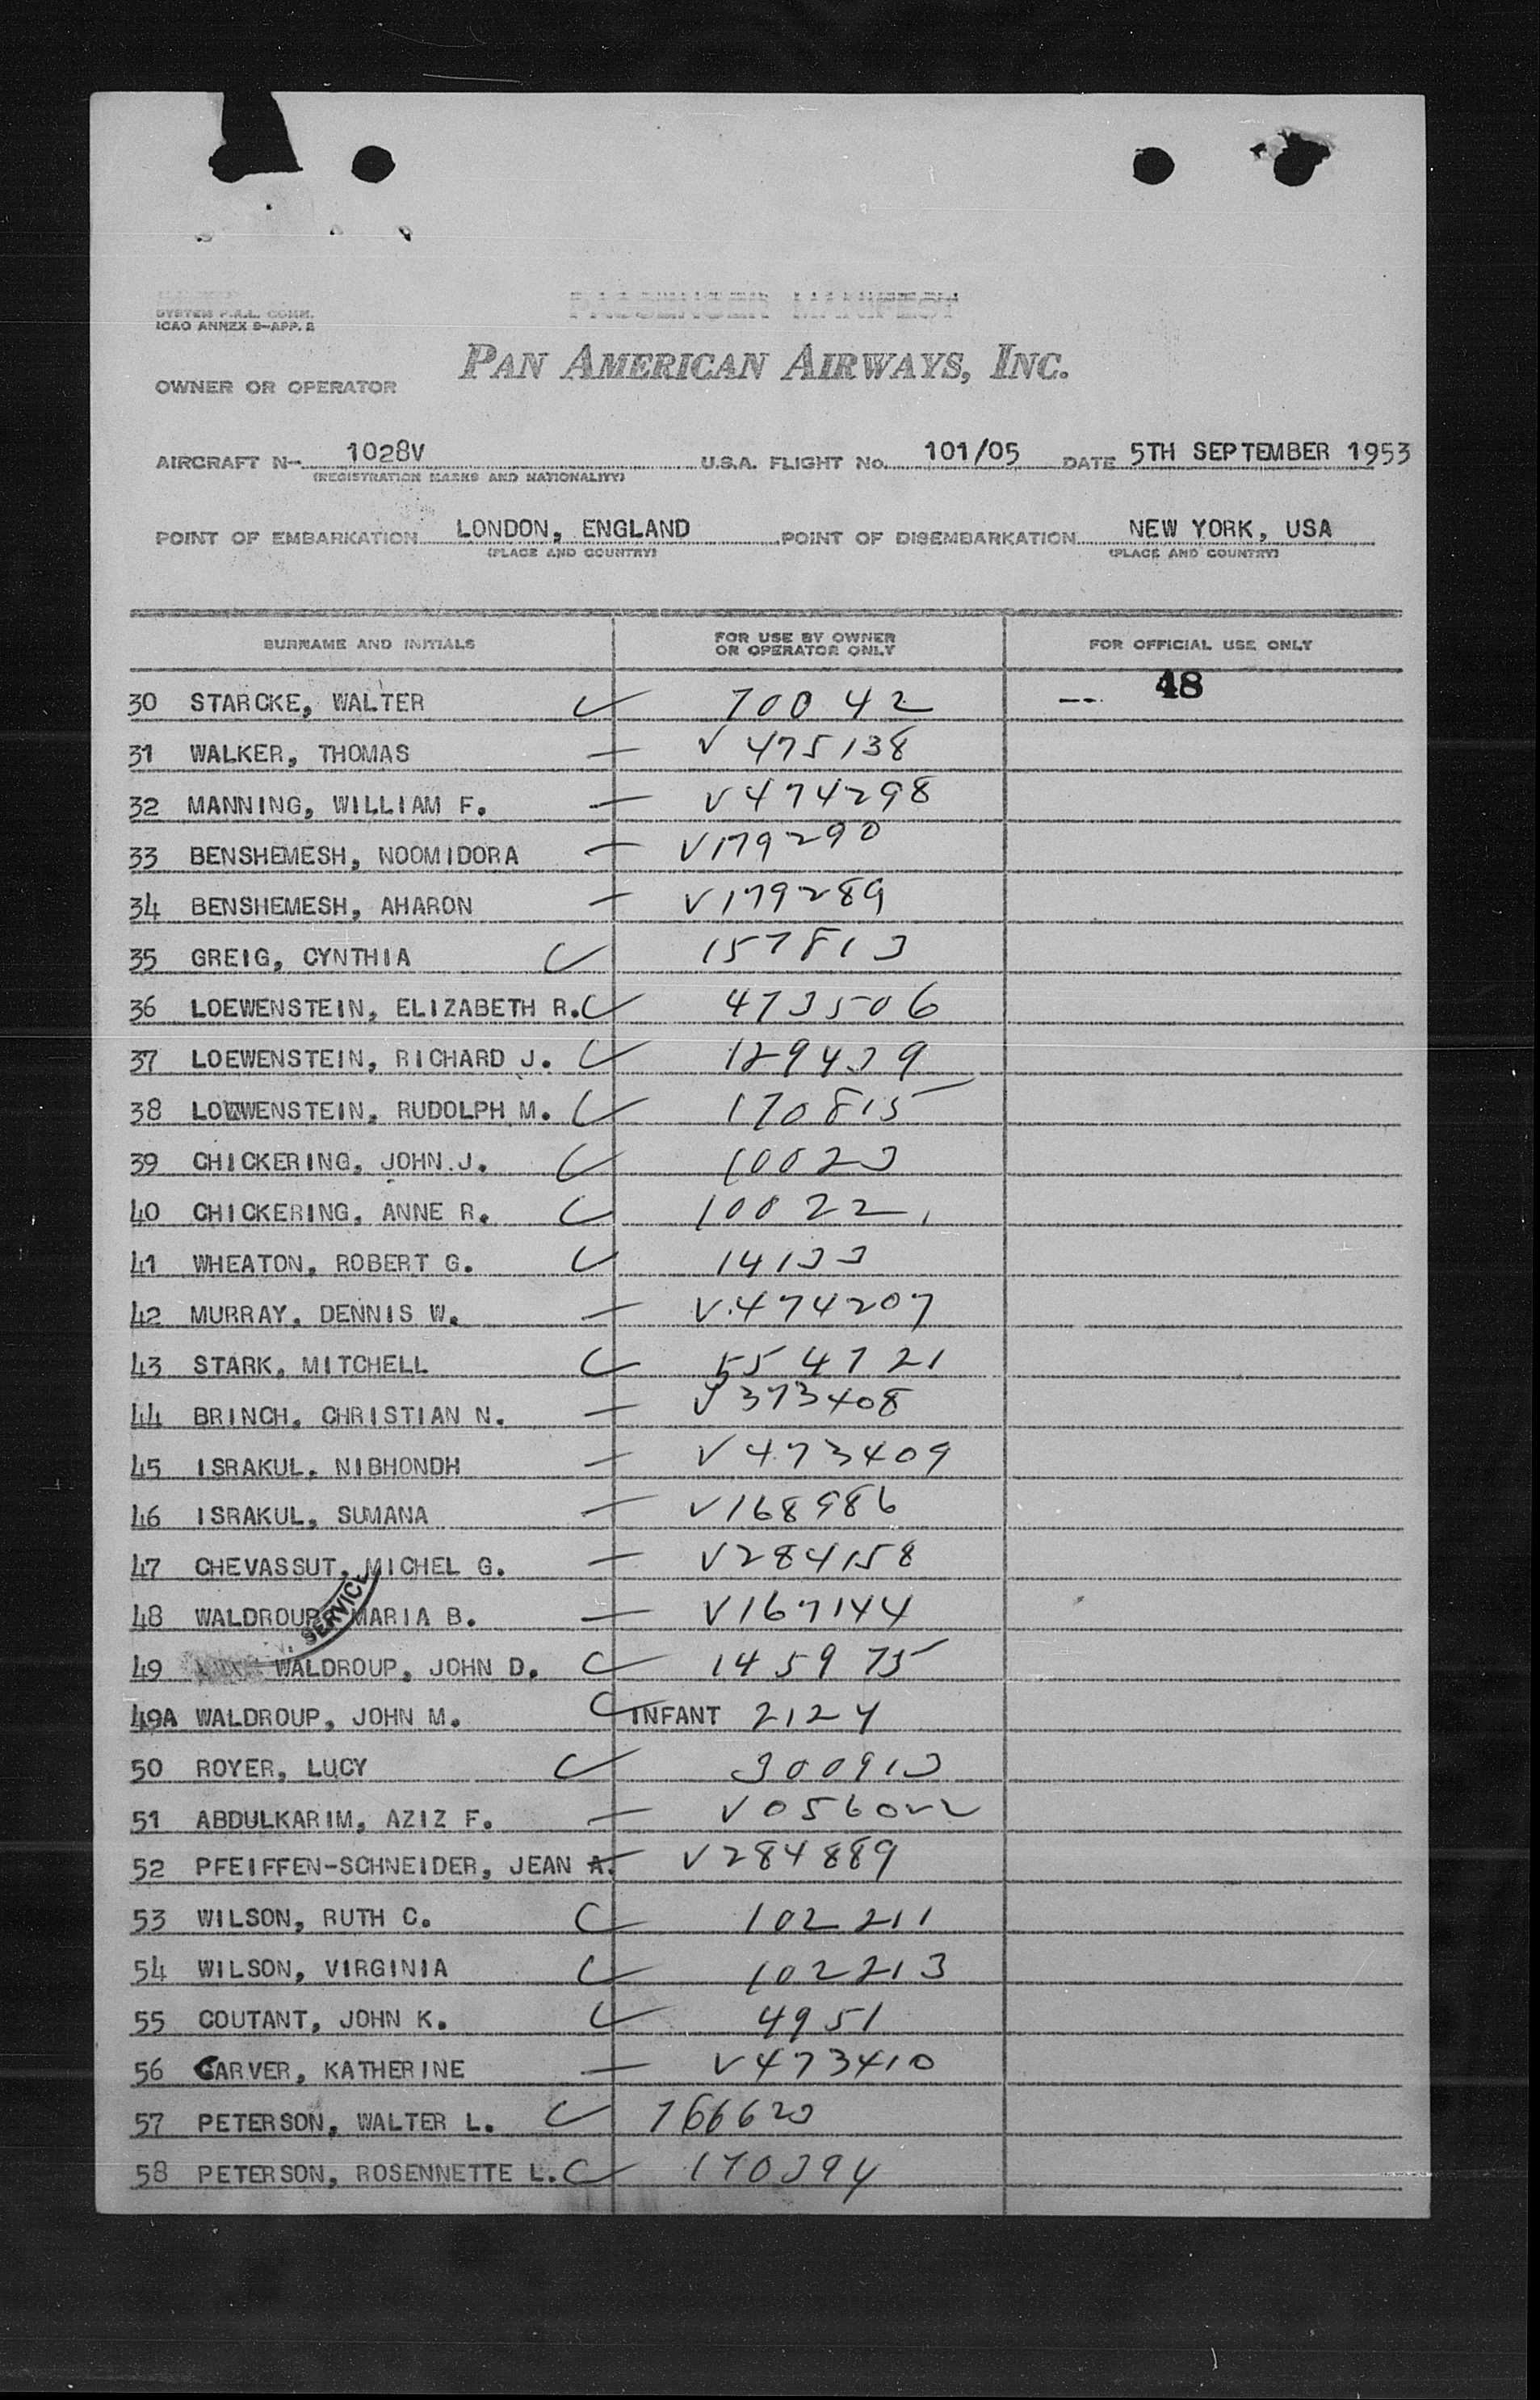 SYSTEM P.A.L. COMM.
ICAO ANNEX 9-APP. 2
PASSENGER MANIFEST
PAN AMERICAN AIRWAYS, INC.
OWNER OR OPERATOR
AIRCRAFT N- 1028V U.S.A. FLIGHT No. 101/05 DATE 5TH SEPTEMBER 1953
(REGISTRATION MARKS AND NATIONALITY)
POINT OF EMBARKATION LONDON, ENGLAND POINT OF DISEMBARKATION NEW YORK, USA
(PLACE AND COUNTRY) (PLACE AND COUNTRY)
SURNAME AND INITIALS FOR USE BY OWNER OR OPERATOR ONLY FOR OFFICIAL USE ONLY
48
30 STARCKE, WALTER 70042
31 WALKER, THOMAS V 475138
32 MANNING, WILLIAM F. V474298
33 BENSHEMESH, NOOMIDORA V179290
34 BENSHEMESH, AHARON V179289
35 GREIG, CYNTHIA 157813
36 LOEWENSTEIN, ELIZABETH R. 473506
37 LOEWENSTEIN, RICHARD J. 129439
38 LOEWENSTEIN, RUDOLPH M. 170815
39 CHICKERING, JOHN J. 10023
40 CHICKERING, ANNE R. 10022
41 WHEATON, ROBERT G. 14133
42 MURRAY, DENNIS W. V.474207
43 STARK, MITCHELL 554721
44 BRINCH, CHRISTIAN N. V373408
45 ISRAKUL, NIBHONDH V473409
46 ISRAKUL, SUMANA V168986
47 CHEVASSUT, MICHEL G. V284158
48 WALDROUP, MARIA B. V167144
SERVICE
49 WALDROUP, JOHN D. 145975
49A WALDROUP, JOHN M. INFANT 2124
50 ROYER, LUCY 300913
51 ABDULKARIM, AZIZ F. V056022
52 PFEIFFEN-SCHNEIDER, JEAN A. V284889
53 WILSON, RUTH C. 102211
54 WILSON, VIRGINIA 102213
55 COUTANT, JOHN K. 4951
56 CARVER, KATHERINE V473410
57 PETERSON, WALTER L. 166623
58 PETERSON, ROSENNETTE L. 170394